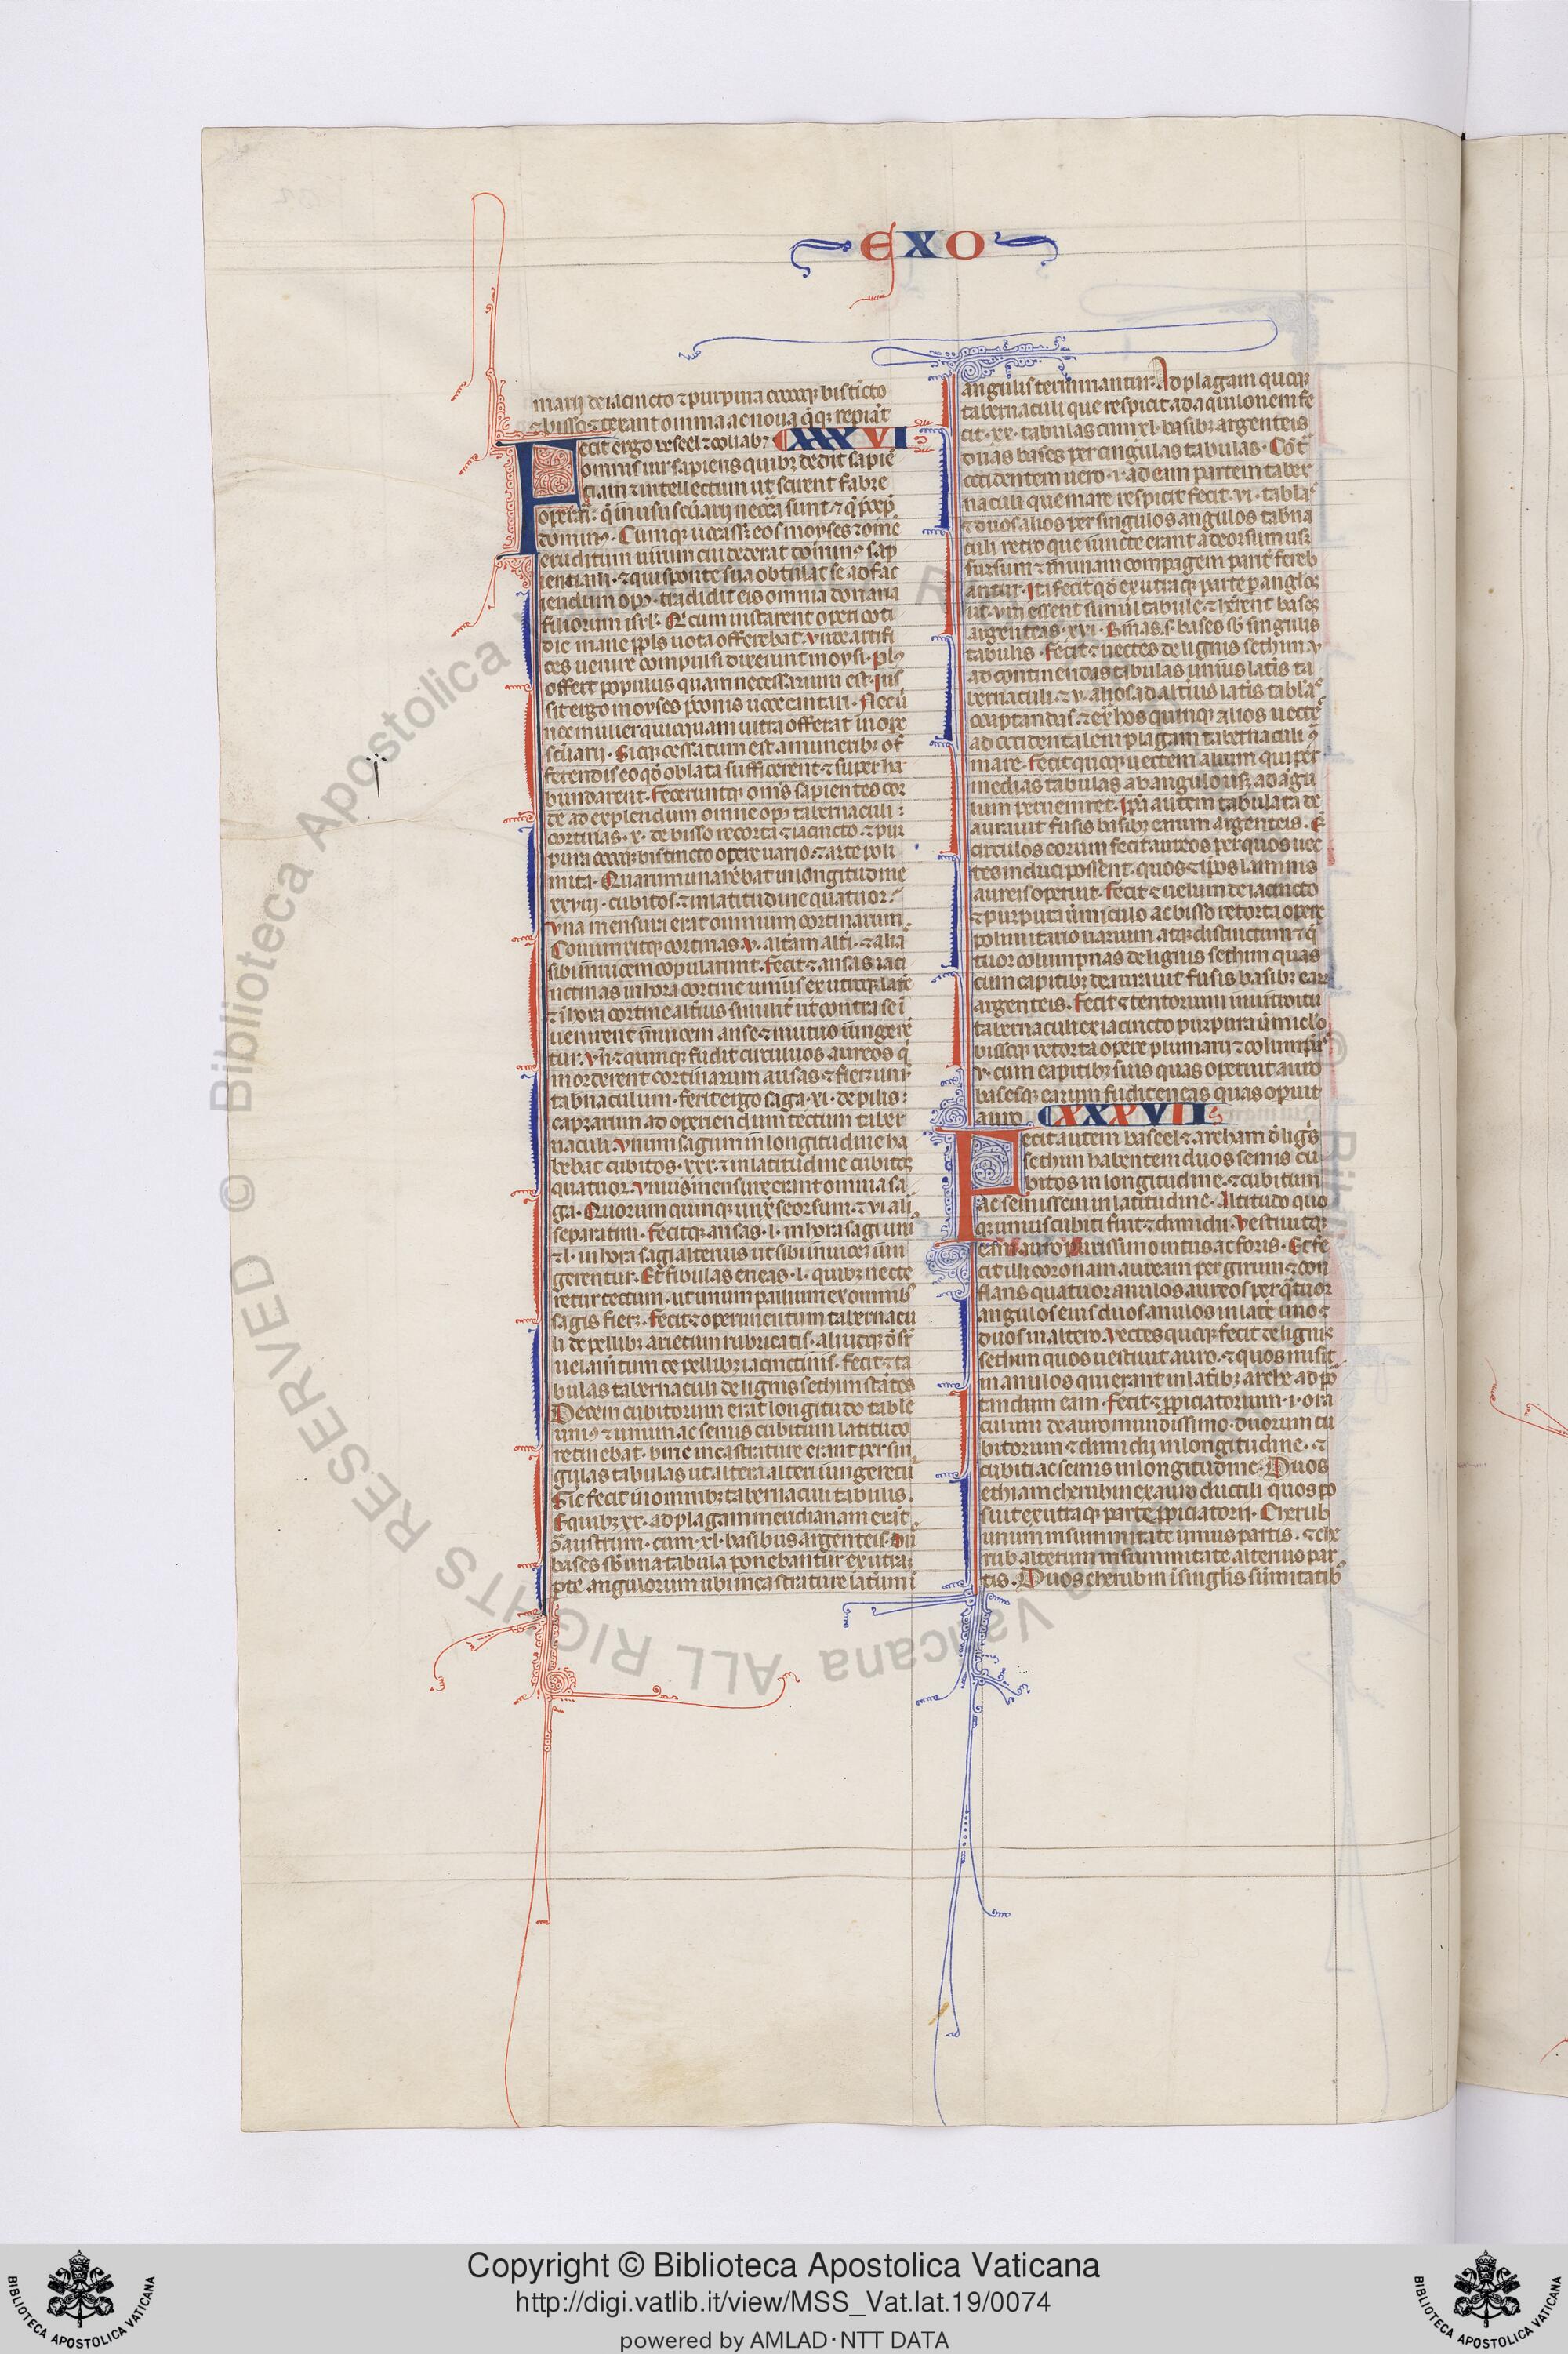 EXO
marij de iacincto ⁊ purpura coccoq; bis ti͂cto
⁊ bisso ⁊ texant omnia ac noua q̄q; repiāt
ecit ergo beseel ⁊ ooliab ⁊ XXXVI
omnis uir sapiens quib; dedit sapiē
tiam ⁊ intellectum ut scirent fabre
operari
domin9. Cumq; uocass; eos moyses ⁊ om̄e
eruditum uirum cui dederat domin9 sap
ientiam. ⁊ qui sponte sua obtulat se ad fac
iendum op9. tradidit eis omnia donaria
filiorum isrl. Qi cum instarent operi coti
die mane ppls uota offerebat. vnde artifi
ces uenire compulsi dixerunt moysi. Pl9
offert populus quam necessarium est. Ius
sit ergo moyses preconis uoce cantari. Nec ui
nec mulier quicquam ultra offerat in ope
sc̄uarij. Sicq; cessatum est a munerib; of
ferendis eo qd̄ oblata sufficerent ⁊ super ha
bundarent. Feceruntq; om̄s sapientes cor
de ad explendum omne op9 tabernaculi:
cortinas .x. de bisso retorta ⁊ iacincto ⁊ pur
pura coccoq; bis tincto opere uario. ⁊ arte poli
mita. Quarum una hēbat in longitudine
xxviii. cubitos. ⁊ in latitudine quatuor.
vna mensura erat omnium cortinarum.
Coniunxitq; cortinas .v. altam alti. ⁊ alia
sibi inuicem copularunt. fecit ⁊ ansas iaci
nctinas in hora cortine unius ex utroq; late
⁊ ī hora cortine alterius similit ut contra se ī
uenirent īnuicem anse ⁊ mutuo iungerē
tur. vn̄ ⁊ quinq; fudit circulos aureos q̄
morderent cortinarum ansas ⁊ fier; unū
tabnaculum. fecit ergo saga .xi. de pilis:
caprarum ad operiendum tectum taber
naculi. vnum sagum in longitudine ha
bebat cubitos .xxx. ⁊ in latitudine cubitos
quatuor. vnius mensure erant omnia sa
ga. Quorum quinq; iunx̄ seorsum. ⁊ vi ali
separatim. fecitq; ansas .l. in hora sagi uni
⁊ l. in hora sagi alterius ut sibi inuicē iun
gerentur. Et fibulas eneas .l. quib; necte
retur tectum. ut unum pallium ex omnib;
sagis fier;. fecit ⁊ operimentum tabernacu
li de pellib; arietum rubricatis. aliudq; desup
uelam̄tum de pellib; iacinctinis. fecit ⁊ ta
bulas tabernaculi de lignis sethim stātes
Decem cubitorum erat longitudo table
uni9. ⁊ unum ac semis cubitum latitudo
retinebat. bine incastrature erant per sin
gulas tabulas ut altera alteri iungeretur
Sic fecit in omnib; tabernaculi tabulis.
E quib; xx. ad plagam meridianam erāt
ꝯtra austrum. cum .xl. basibus argenteis. Du
bases sb̄ una tabula ponebantur ex utraq;
pte angulorum ubi incastrature laterum ī
angulis terminantur. Ad plagam quoq;
tabernaculi que respicit ad aquilonem fe
cit .xx. tabulas cum .xl. basib; argenteis
duas bases per singulas tabulas. Cōt
occidentem uero .i. ad eam partem taber
naculi que mare respicit fecit .vi. tablas
⁊ duos alios per singulos angulos tabna
culi retro que iuncte erant a deorsum usq;
sursum ⁊ in unam compagem parit̄ fereb
antur. Ita fecit qd̄ ex utraq; parte p anglos
ut .viii. essent simul tabule ⁊ hērent bases
argenteas .xvi. Binas .s. bases sb̄ singulis
tabulis. fecit ⁊ uectes de lignis sethim .v
ad continendas tabulas unius latis ta
bernaculi. ⁊ .v. alios ad altius latis tablas
coaptandas. ⁊ extra hos quinq; alios uectes
ad occidentalem plagam tabernaculi 9tra
mare. fecit quoq; uectem alium qui per
medias tabulas ab angulo usq; ad āgu
lum perueniret. Ip̄a autem tabulata de
aurauit fusis basib; earum argenteis. E
circulos eorum fecit aureos per quos uec
tes induci possent. quos ⁊ ip̄os laminis
aureis operuit. fecit ⁊ uelum de iacincto
⁊ purpura uermiculo ac bisso retorta opere
polimitario uarium. atq; distinctum ⁊ q̄
tuor columpnas de lignis sethim quas
cum capitib; deaurauit fusis basib; ear
argenteis. fecit ⁊ tentorium in introitu
tabernaculi ex iacincto purpura u̅miclo
bissoq; retorta opere plumarij ⁊ columpn̄s
.v. cum capitib; suis quas operuit auro
basesq; earum fudit eneas quas opuit
auro. XXXVII
ecit autem beseel ⁊ archam d̄ ligs
sethim habentem duos semis cu
bitos in longitudine. ⁊ cubitum
ac semissem in latitudine. Altitudo quo
q; unius cubiti fuit ⁊ dimidii. Vestiuitq;
eam auro purissimo intus ac foris. Et fe
cit illi coronam auream per girum ⁊ con
flans quatuor anulos aureos per q̄tuor
angulos eius duos anulos in latē uno ⁊
duos in altero. Vectes quoq; fecit de lignis
sethim quos uestiuit auro. ⁊ quos misit
in anulos qui erant in latib; arche ad por
tandum eam. fecit ⁊ ppiciatorium .i. ora
culum de auro mundissimo. duorum cu
bitorum ⁊ dimidij in longitudine. ⁊
cubiti ac semis in longitudine. Duos
ethiam cherubin ex auro ductili quos po
suit ex utraq; parte ppiciatorii. Cherub
unum in summitate unius partis. ⁊ che
rub alterum in summitate alterius par
tis. Duos cherubin ī singlis sūmitatib;
Copyright © Biblioteca Apostolica Vaticana
http://digi.vatlib.it/view/MSS_Vat.lat.19/0074
powered by AMLAD·NTT DATA
BIBLIOTECA APOSTOLICA VATICANA
BIBLIOTECA APOSTOLICA VATICANA
© Biblioteca Apostolica Vaticana ALL RIGHTS RESERVED